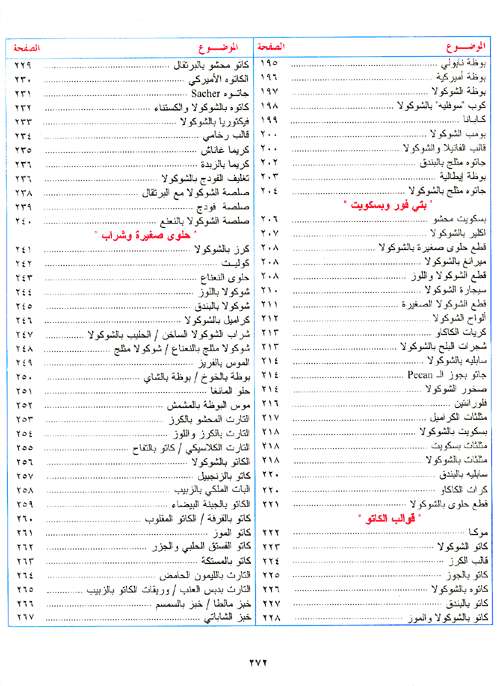 الموضوع الصفحة
بوظة نابولي ١٩٥
بوظة أميركية ١٩٦
بوظة الشوكولا ١٩٧
كوب "سوفليه" بالشوكولا ١٩٨
كـابـانا ١٩٩
بومب الشوكولا ٢٠٠
قالب الفانيلا والشوكولا ٢٠٠
جاتوه مثلج بالبندق ٢٠٢
بوظة إيطالية ٢٠٣
جاتوه مثلج بالشوكولا ٢٠٤
" بتي فور وبسكويت "
بسكويت محشو ٢٠٦
اكلير بالشوكولا ٢٠٧
قطع حلوى صغيرة بالشوكولا ٢٠٨
ميرانغ بالشوكولا ٢٠٨
قطع الشوكولا واللوز ٢٠٨
سيجارة الشوكولا ٢١٠
قطع الشوكولا الصغيرة ٢١١
ألواح الشوكولا ٢١٢
كريات الكاكاو ٢١٣
شجرات البلح بالشوكولا ٢١٣
سابليه بالشوكولا ٢١٤
جاتو بجوز الـ Pecan ٢١٤
صخور الشوكولا ٢١٤
فلورانتين ٢١٦
مثلثات الكراميل ٢١٧
بسكويت بالشوكولا ٢١٨
مثلثات بسكويت ٢١٨
مثلثات بالشوكولا ٢١٨
سابليه بالبندق ٢٢٠
كرات الكاكاو ٢٢٠
قطع حلوى بالشوكولا ٢٢١
" قوالب الكاتو "
موكـا ٢٢٢
كاتو الشوكولا ٢٢٣
قالب الكرز ٢٢٤
كاتو بالجوز ٢٢٥
كاتوه بالشوكولا ٢٢٦
كاتو بالبندق ٢٢٧
كاتو بالشوكولا والموز ٢٢٨
الموضوع الصفحة
كاتو محشو بالبرتقال ٢٢٩
الكاتوه الأميركي ٢٣٠
جاتـوه Sacher ٢٣١
كاتوه بالشوكولا والكستناء ٢٣٢
فيكتوريا بالشوكولا ٢٣٣
قالب رخامي ٢٣٤
كريما غاناش ٢٣٥
كريما بالزبدة ٢٣٦
تغليف الفودج بالشوكولا ٢٣٦
صلصة الشوكولا مع البرتقال ٢٣٨
صلصة فودج ٢٣٩
صلصة الشوكولا بالنعنع ٢٤٠
" حلوى صغيرة وشراب "
كرز بالشوكولا ٢٤١
كوليـت ٢٤٢
حلوى النعناع ٢٤٣
شوكولا باللوز ٢٤٤
شوكولا بالبندق ٢٤٥
كراميل بالشوكولا ٢٤٦
شراب الشوكولا الساخن / الحليب بالشوكولا ٢٤٧
شوكولا مثلج بالنعناع / شوكولا مثلج ٢٤٨
الموس بالفريز ٢٤٩
بوظة بالخوخ / بوظة بالشاي ٢٥٠
حلو المانغا ٢٥١
موس البوظة بالمشمش ٢٥٢
التارت المحشو بالكرز ٢٥٣
التارت بالكرز واللوز ٢٥٤
التارت الكلاسيكي / كاتو بالتفاح ٢٥٥
الكاتو بالشوكولا ٢٥٦
كاتو بالزنجبيل ٢٥٧
البات الملكي بالزبيب ٢٥٨
الكاتو بالجبنة البيضاء ٢٥٩
كاتو بالقرفة / الكاتو المقلوب ٢٦٠
كاتو الموز ٢٦١
كاتو الفستق الحلبي والجزر ٢٦٢
كاتو بالمستكة ٢٦٣
التارت بالليمون الحامض ٢٦٤
التارت بدبس العنب / وريقات الكاتو بالزبيب ٢٦٥
خبز مالطا / خبز بالسمسم ٢٦٦
خبز الشاباتي ٢٦٧
٢٧٢